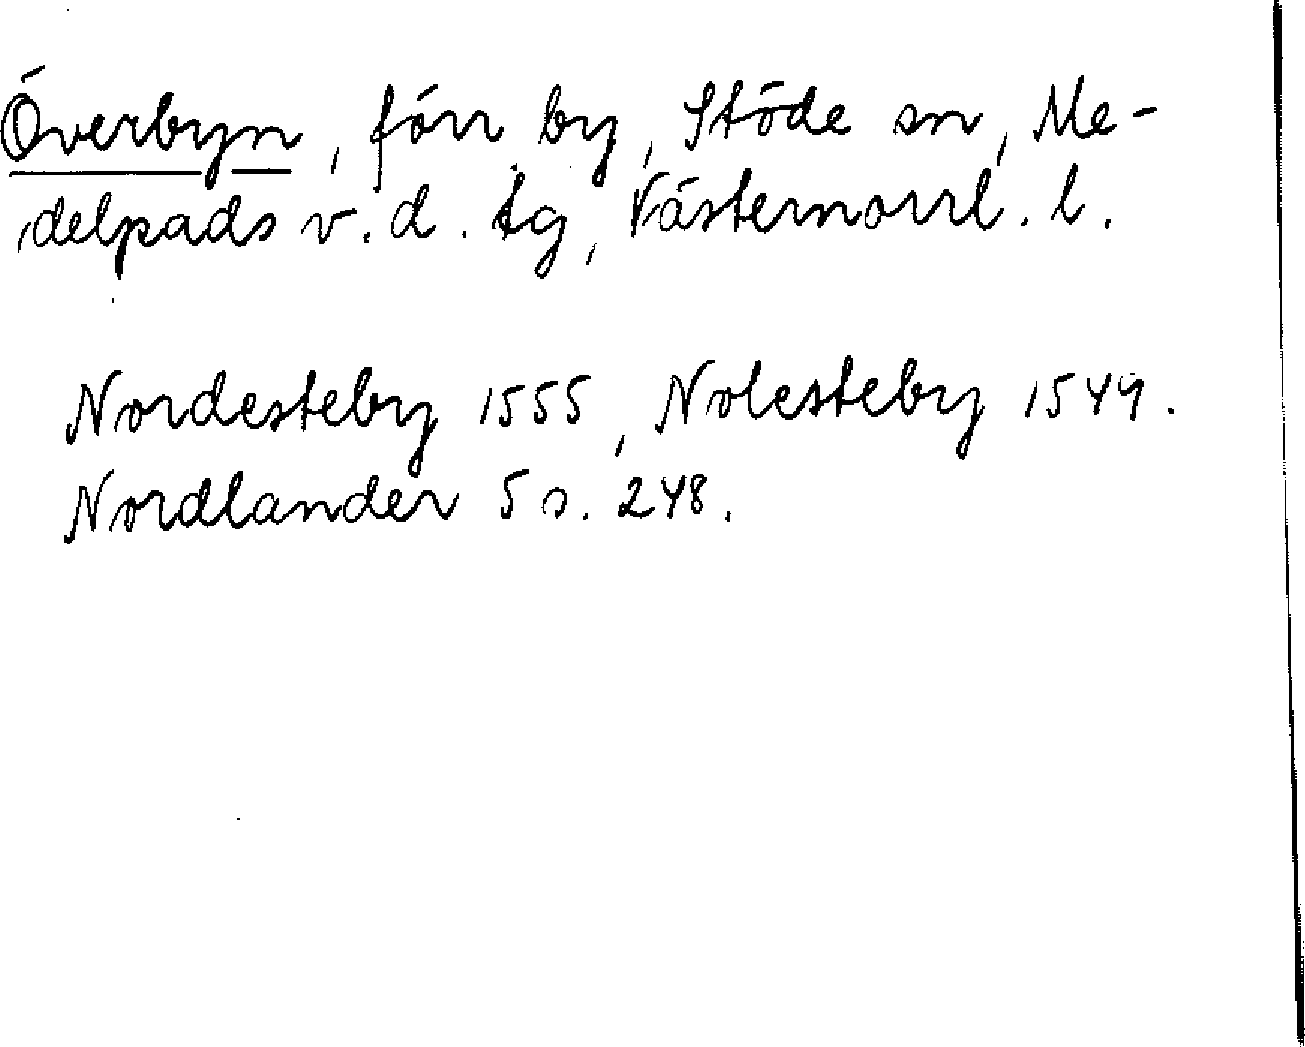 Överbyn, förr by, Stöde sn, Me-
delpads v. d. tg, Västernorrl. l.
Nordesteby 1555, Nolesteby 1549.
Nordlander 5 s. 248.